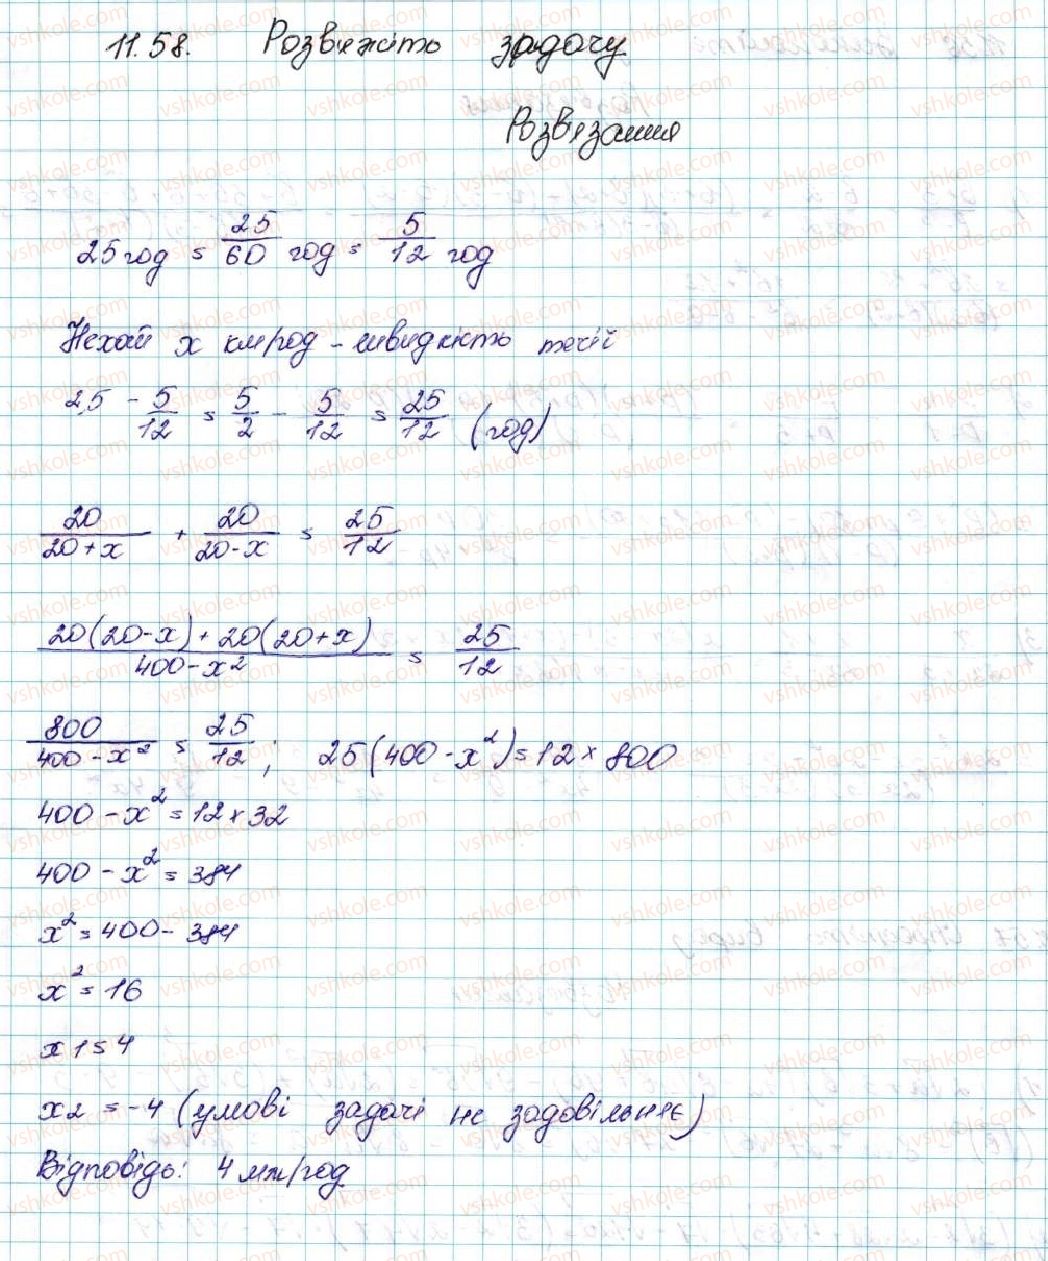 11.58. Розв'яжіть задачу
Розв'язання
25 год = 25/60 год = 5/12 год
Нехай x км/год - швидкість течії
2,5 - 5/12 = 5/2 - 5/12 = 25/12 (год)
20/(20+x) + 20/(20-x) = 25/12
(20(20-x)+20(20+x))/(400-x²) = 25/12
800/(400-x²) = 25/12; 25(400-x²)=12×800
400-x²=12×32
400-x²=384
x²=400-384
x²=16
x1=4
x2=-4 (умові задачі не задовільняє)
Відповідь: 4 км/год